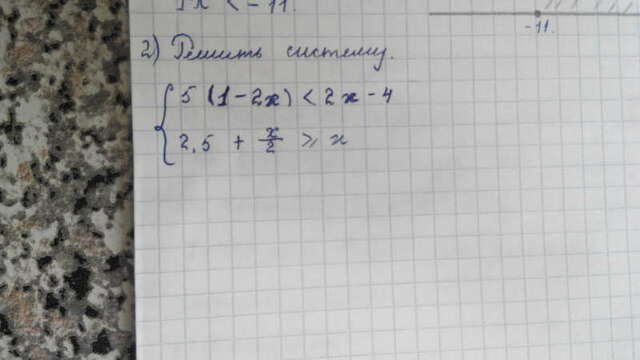 x < -11.
-11.
2) Решить систему.
5 (1 - 2x) < 2x - 4
2,5 + x/2 ⩾ x